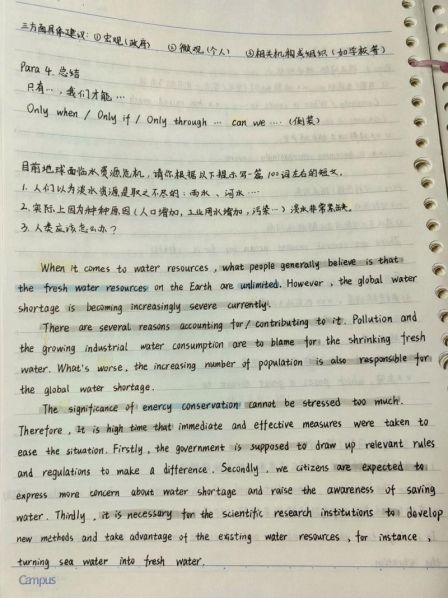 三方面具体建议：①宏观（政府） ②微观（个人） ③相关机构或组织（如学校等）
Para 4. 总结
只有…，我们才能…
Only when / Only if / Only through … can we …. （倒装）
目前地球面临水资源危机，请你根据以下提示写一篇100词左右的短文。
1. 人们以为淡水资源是取之不尽的：雨水、河水….
2. 实际上因为种种原因（人口增加，工业用水增加，污染…）淡水非常紧缺。
3. 人类应该怎么办？
When it comes to water resources, what people generally believe is that
the fresh water resources on the Earth are unlimited. However, the global water
shortage is becoming increasingly severe currently.
There are several reasons accounting for / contributing to it. Pollution and
the growing industrial water consumption are to blame for the shrinking fresh
water. What's worse, the increasing number of population is also responsible for
the global water shortage.
The significance of energy conservation cannot be stressed too much.
Therefore, It is high time that immediate and effective measures were taken to
ease the situation. Firstly, the government is supposed to draw up relevant rules
and regulations to make a difference. Secondly, we citizens are expected to
express more concern about water shortage and raise the awareness of saving
water. Thirdly, it is necessary for the scientific research institutions to develop
new methods and take advantage of the existing water resources, for instance,
turning sea water into fresh water.
Campus